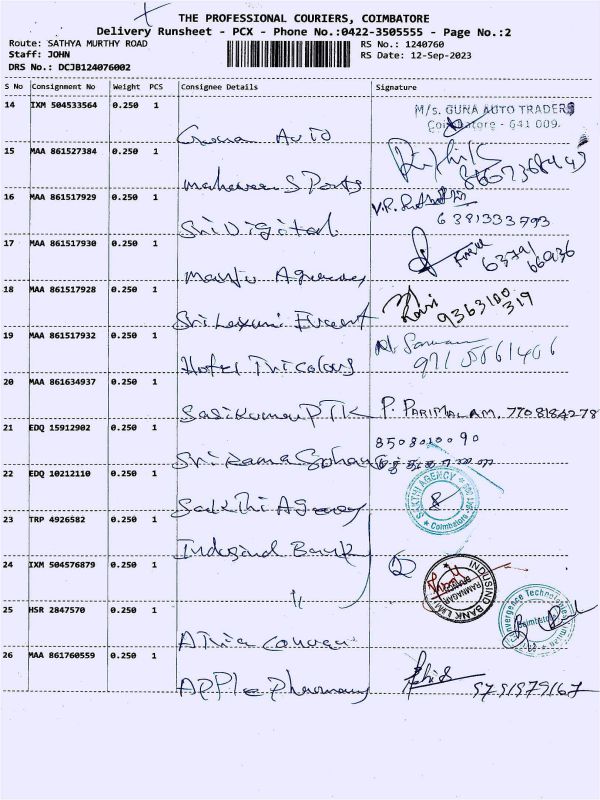 THE PROFESSIONAL COURIERS, COIMBATORE
Delivery Runsheet - PCX - Phone No.:0422-3505555 - Page No.:2
Route: SATHYA MURTHY ROAD
RS No.: 1240760
Staff: JOHN
RS Date: 12-Sep-2023
DRS No.: DCJB124076002
S No Consignment No Weight PCS Consignee Details Signature
14 IXM 504533564 0.250 1
M/s. GUNA AUTO TRADERS
Coimbatore - 641 009.
Guna Auto
15 MAA 861527384 0.250 1
Mahaveer Sports
16 MAA 861517929 0.250 1
V.R.
6381333793
Sri Digital
17 MAA 861517930 0.250 1
Manju Agencies
18 MAA 861517928 0.250 1
Ravi
9363100
319
Sri Laxmi Event
19 MAA 861517932 0.250 1
Hotel Tricolour
20 MAA 861634937 0.250 1
Sasikumar PTK P. PARIMALAM. 7708184278
21 EDQ 15912902 0.250 1
8508010090
Sri Rama
22 EDQ 10212110 0.250 1
SAKTHI AGENCY
Coimbatore
Sakthi Agency
23 TRP 4926582 0.250 1
Indusind Bank
24 IXM 504576879 0.250 1
INDUSIND BANK LIMITED
RAMNAGAR
25 HSR 2847570 0.250 1
Convergence Technologies
Coimbatore
26 MAA 861760559 0.250 1
Apple Pharmacy 9791979167